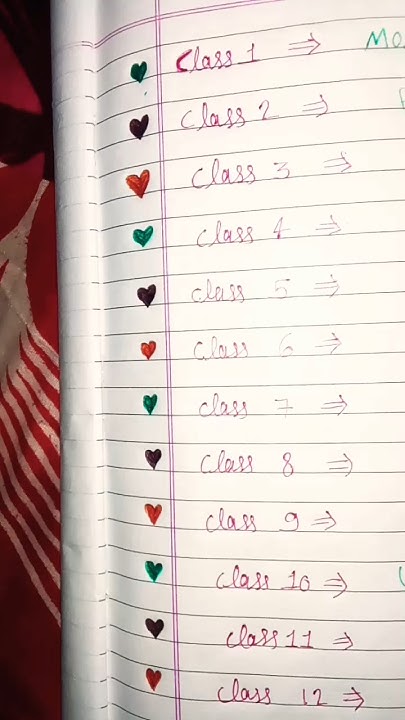 Class 1 ⇒
Class 2 ⇒
Class 3 ⇒
Class 4 ⇒
Class 5 ⇒
Class 6 ⇒
Class 7 ⇒
Class 8 ⇒
Class 9 ⇒
Class 10 ⇒
Class 11 ⇒
Class 12 ⇒